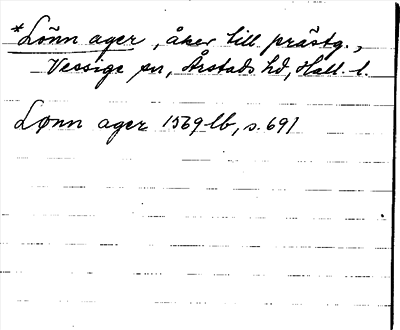 *Lönn ager, åker till prästg.,
Vessige sn, Årstads hd, Hall. l.
Lønn ager 1569 lb, s. 691